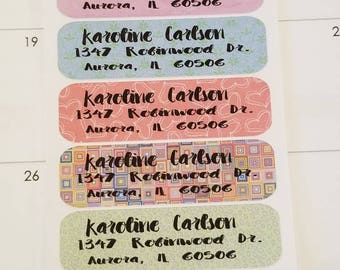 Aurora, IL 60506
19
Karoline Carlson
1347 Robinwood Dr.
Aurora, IL 60506
Karoline Carlson
1347 Robinwood Dr.
Aurora, IL 60506
26
Karoline Carlson
1347 Robinwood Dr.
Aurora, IL 60506
Karoline Carlson
1347 Robinwood Dr.
Aurora, IL 60506